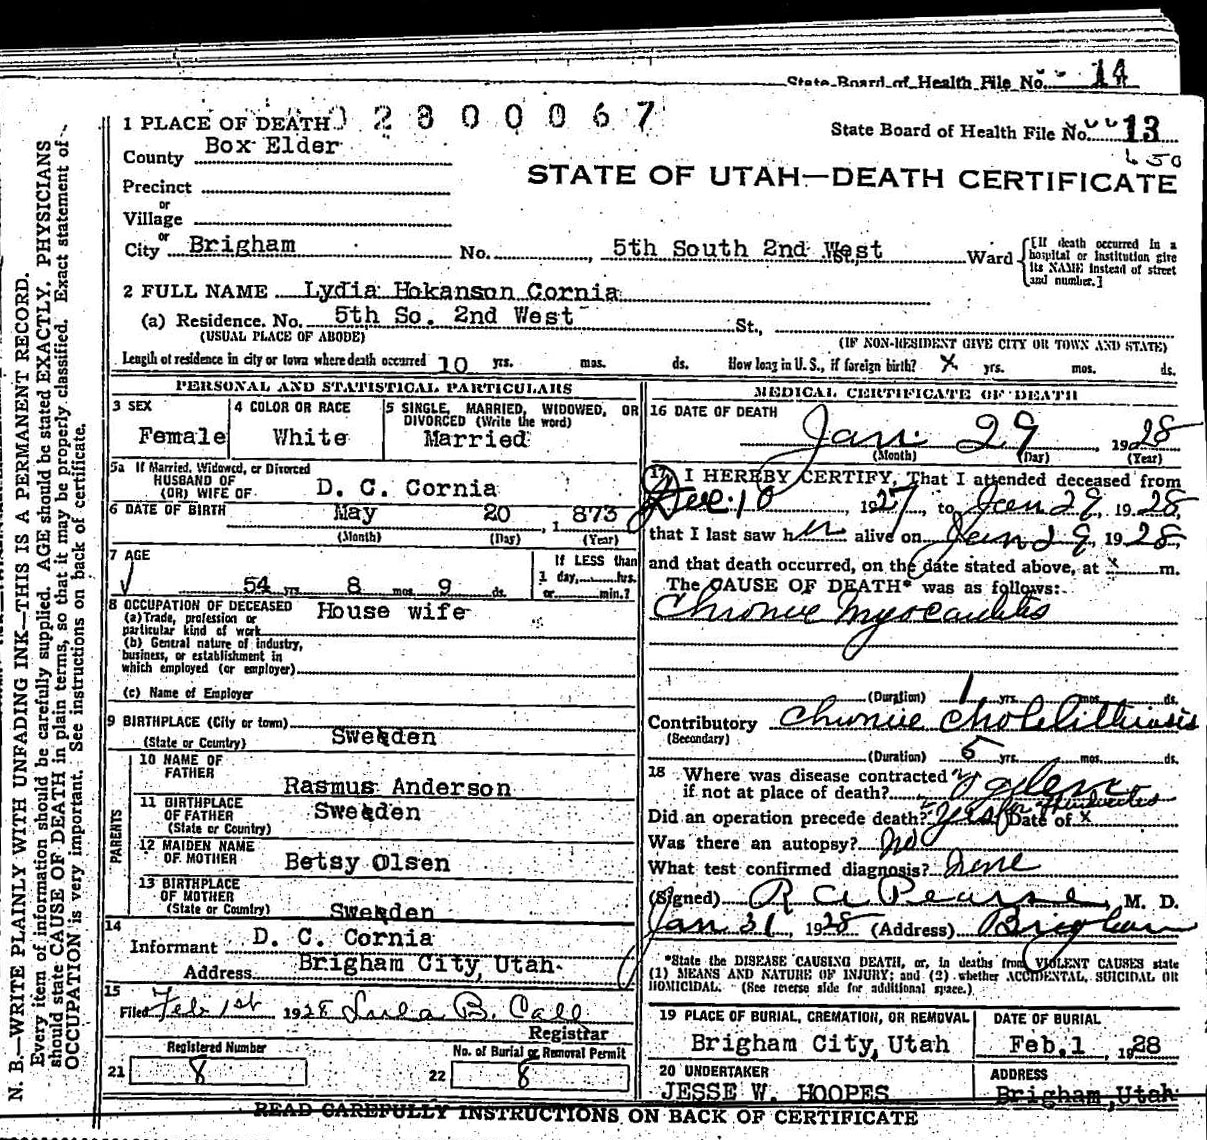 State Board of Health File No. 14
0 2 8 0 0 0 6 7
State Board of Health File No. 13
650
STATE OF UTAH—DEATH CERTIFICATE
N. B.—WRITE PLAINLY WITH UNFADING INK—THIS IS A PERMANENT RECORD.
Every item of information should be carefully supplied. AGE should be stated EXACTLY. PHYSICIANS
should state CAUSE OF DEATH in plain terms, so that it may be properly classified. Exact statement of
OCCUPATION is very important. See instructions on back of certificate.
1 PLACE OF DEATH
County Box Elder
Precinct
or
Village
or
City Brigham No. , 5th South 2nd West, Ward
[If death occurred in a
hospital or institution give
its NAME instead of street
and number.]
2 FULL NAME Lydia Hokanson Cornia
(a) Residence. No. 5th So. 2nd West St.,
(USUAL PLACE OF ABODE) (IF NON-RESIDENT GIVE CITY OR TOWN AND STATE)
Length of residence in city or town where death occurred 10 yrs. mos. ds. How long in U. S., if foreign birth? x yrs. mos. ds.
PERSONAL AND STATISTICAL PARTICULARS
3 SEX
Female
4 COLOR OR RACE
White
5 SINGLE, MARRIED, WIDOWED, OR
DIVORCED (Write the word)
Married
5a If Married, Widowed, or Divorced
HUSBAND OF
(OR) WIFE OF D. C. Cornia
6 DATE OF BIRTH May 20 , 1 873
(Month) (Day) (Year)
7 AGE
54 yrs. 8 mos. 9 ds.
If LESS than
1 day, hrs.
or min.?
8 OCCUPATION OF DECEASED House wife
(a) Trade, profession or
particular kind of work
(b) General nature of industry,
business, or establishment in
which employed (or employer)
(c) Name of Employer
9 BIRTHPLACE (City or town)
(State or Country) Sweden
PARENTS
10 NAME OF
FATHER Rasmus Anderson
11 BIRTHPLACE
OF FATHER Sweden
(State or Country)
12 MAIDEN NAME
OF MOTHER Betsy Olsen
13 BIRTHPLACE
OF MOTHER
(State or Country) Sweden
14
Informant D. C. Cornia
Address Brigham City, Utah.
15
Filed Feb 1st 1928 Lula B. Call
Registrar
Registered Number
21 8
No. of Burial or Removal Permit
22 8
MEDICAL CERTIFICATE OF DEATH
16 DATE OF DEATH
Jan. 29 , 1928
(Month) (Day) (Year)
17 I HEREBY CERTIFY, That I attended deceased from
Dec. 10 , 1927, to Jan 29, 1928,
that I last saw her alive on Jan 29, 1928,
and that death occurred, on the date stated above, at x m.
The CAUSE OF DEATH* was as follows:
Chronic Myocarditis
(Duration) 1 yrs. mos. ds.
Contributory Chronic Cholelithiasis
(Secondary)
(Duration) 5 yrs. mos. ds.
18 Where was disease contracted
if not at place of death? Ogden
Did an operation precede death? yes Date of x
Was there an autopsy? no
What test confirmed diagnosis? none
(Signed) R A Pearse, M. D.
Jan 31, 1928 (Address) Brigham
*State the DISEASE CAUSING DEATH, or, in deaths from VIOLENT CAUSES state
(1) MEANS AND NATURE OF INJURY; and (2) whether ACCIDENTAL, SUICIDAL OR
HOMICIDAL. (See reverse side for additional space.)
19 PLACE OF BURIAL, CREMATION, OR REMOVAL
Brigham City, Utah
DATE OF BURIAL
Feb. 1 , 1928
20 UNDERTAKER
JESSE W. HOOPES
ADDRESS
Brigham, Utah
READ CAREFULLY INSTRUCTIONS ON BACK OF CERTIFICATE